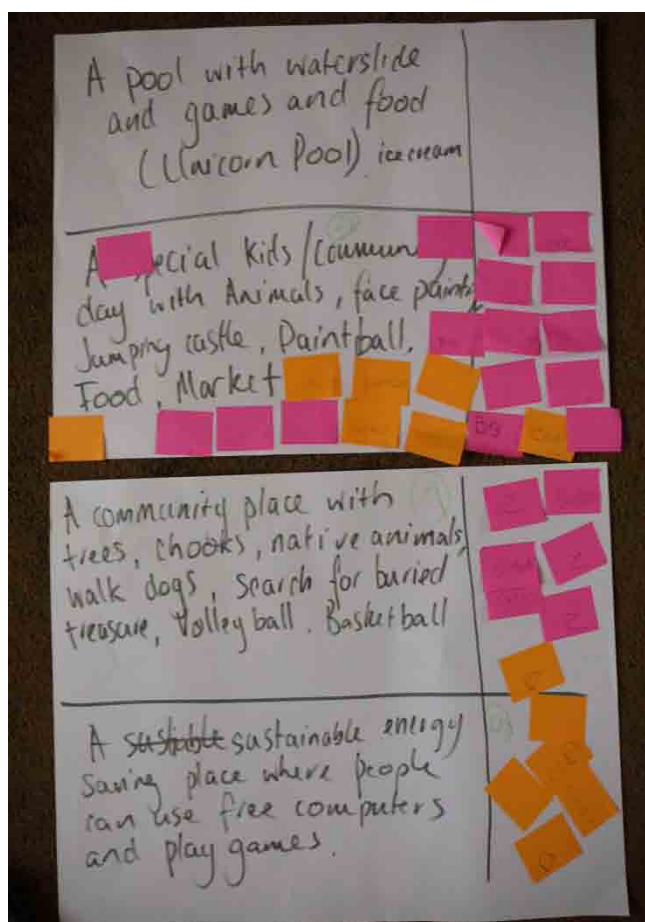 A pool with waterslide
and games and food
(Unicorn Pool) ice cream
A special kids/Commun
day with Animals, face paint
Jumping castle, Paintball,
Food, Market
BG
A community place with
trees, chooks, native animals,
walk dogs, search for buried
treasure, Volleyball. Basketball
Z
Z
Z
A sustainable energy
saving place where people
can use free computers
and play games.